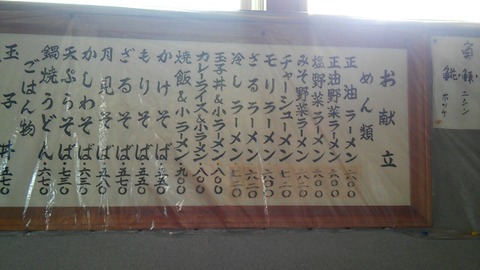 お献立
めん類
正油ラーメン 六〇〇
正油野菜ラーメン 六〇〇
塩野菜ラーメン 六〇〇
みそ野菜ラーメン 六二〇
チャーシューメン 七二〇
モリラーメン 六〇〇
ざるラーメン 六二〇
冷しラーメン 七二〇
玉子丼&小ラーメン・八〇〇
カレーライス&小ラーメン・八〇〇
焼飯&小ラーメン・九〇〇
かけそば・五五〇
もりそば・五五〇
ざるそば・五七〇
月見そば・五七〇
かしわそば・六五〇
天ぷらそば・七三〇
鍋焼うどん・六七〇
ごはん物
玉子丼 五七〇
ニシン
ホッケ